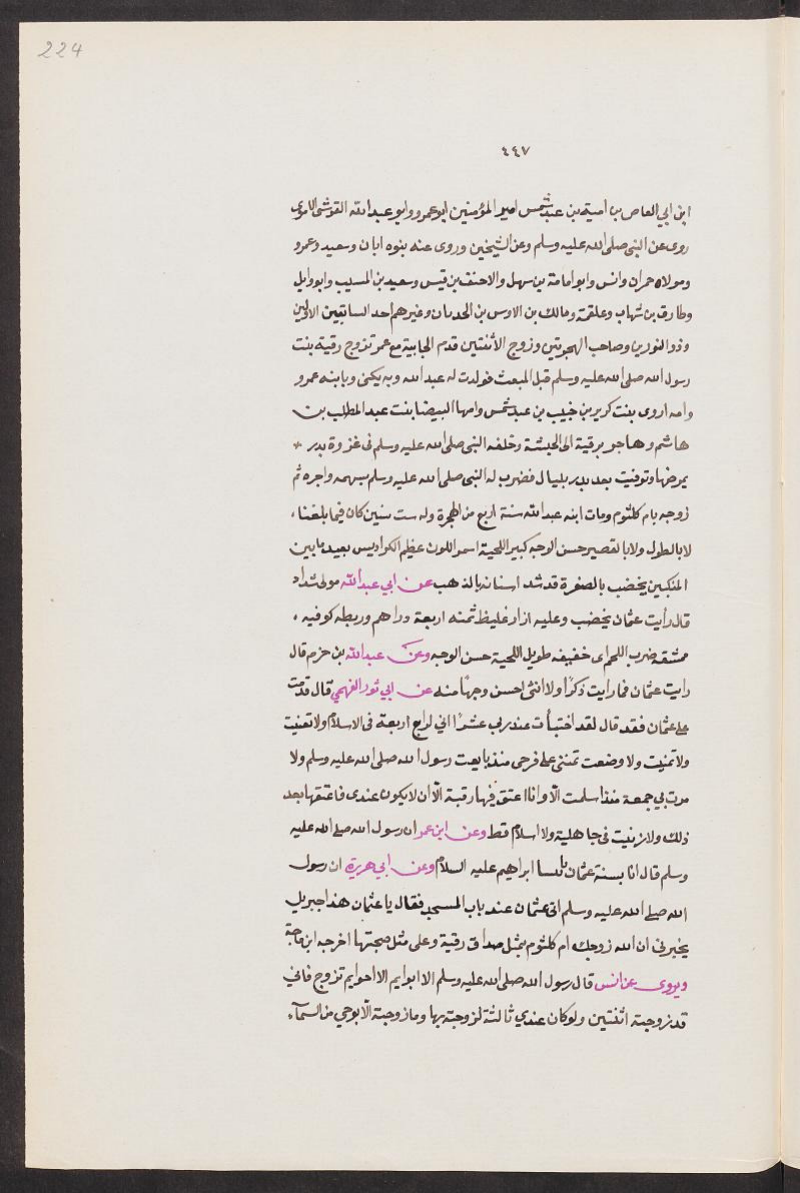 224
٤٤٧
ابن ابي العاص بن امية بن عبد شمس امير المؤمنين ابو عمرو وابو عبد الله القرشي الاموي
روى عن النبي صلى الله عليه وسلم وعن الشيخين وروى عنه بنوه ابان وسعيد وعمرو
ومولاه حمران وانس وابو امامة بن سهل والاحنف بن قيس وسعيد بن المسيب وابو وايل
وطارق بن شهاب وعلقمة ومالك بن الاوس بن الحدثان وغيرهم احد السابقين الاولين
وذو النورين وصاحب الهجرتين وزوج الأنتين قدم الجابية مع عمر تزوج رقية بنت
رسول الله صلى الله عليه وسلم قبل المبعث فولدت له عبد الله وبه يكنى وبابنه عمرو
وامه اروى بنت كريز بن خبيب بن عبد شمس وامها البيضا بنت عبد المطلب بن
هاشم وهاجر برقية الى الحبشة وخلفه النبي صلى الله عليه وسلم في غزوة بدر
يمرضها وتوفيت بعد بدر بليال فضرب له النبي صلى الله عليه وسلم بسهمه واجره ثم
زوجه بام كلثوم ومات ابنه عبد الله سنة اربع من الهجرة وله ست سنين كان فيما بلغنا ،
لا بالطول ولا بالقصير حسن الوجه كبير اللحية اسمر اللون عظيم الكراديس بعيد ما بين
المنكبين يخضب بالصفرة قد شد اسنانه بالذهب عن ابي عبد الله مولى شداد
قال رأيت عثمان يخضب وعليه ازار غليظ ثمنه اربعة دراهم وريطه كوفيه ،
ممشقه ضرب اللحم اى خفيفه طويل اللحية حسن الوجه وعن عبد الله بن حزم قال
رايت عثمان فما رايت ذكرًا ولا انثى احسن وجهًا منه عن ابي ثور الفهمي قال قدمت
على عثمان فقد قال لقد اختبأت عند ربي عشرًا اني لرابع اربعة في الاسلام ولا تعنيت
ولا تمنيت ولا وضعت يمنني على فرجى منذ بايعت رسول الله صلى الله عليه وسلم ولا
مرت بي جمعة منذ اسلمت الّا وانا اعتق فيها رقبة الّا ان لا يكون عندى فاعتقها بعد
ذلك ولا زنيت في جاهلية ولا اسلام قط وعن ابن عمر ان رسول الله صلى الله عليه
وسلم قال انا ابراهيم عليه السلام وعن ابي هريرة ان رسول
الله صلى الله عليه وسلم اتى عثمان عند باب المسجد فقال يا عثمان هذا جبريل
يخبرني ان الله زوجك ام كلثوم بمثل صداق رقية وعلى مثل صحبتها اخرجه ابن ماجة
ويروى عن انس قال رسول الله صلى الله عليه وسلم الا ابو ايم الا اخو ايم تزوج فاني
قد زوجته اثنتين ولو كان عندي ثالثة لزوجته بها وما زوجته الّا بوحي من السمآء